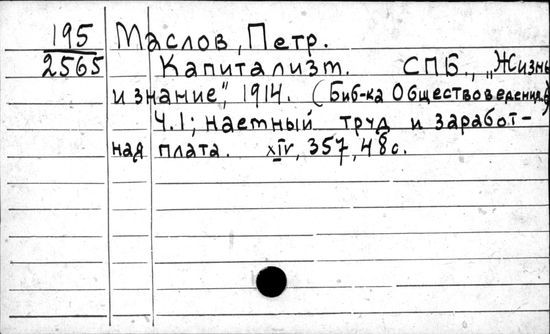 195 Маслов, Петр.
2565 Капитализм. СПБ., „Жизнь
и знание", 1914. (Биб-ка Обществоведения.)
Ч.1; наемный труд и заработ-
ная плата. XIV, 357, 48 с.